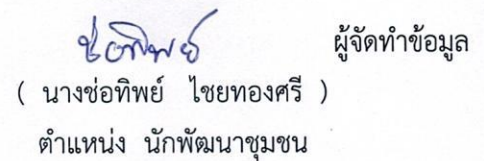 ช่อทิพย์ ผู้จัดทำข้อมูล
( นางช่อทิพย์ ไชยทองศรี )
ตำแหน่ง นักพัฒนาชุมชน